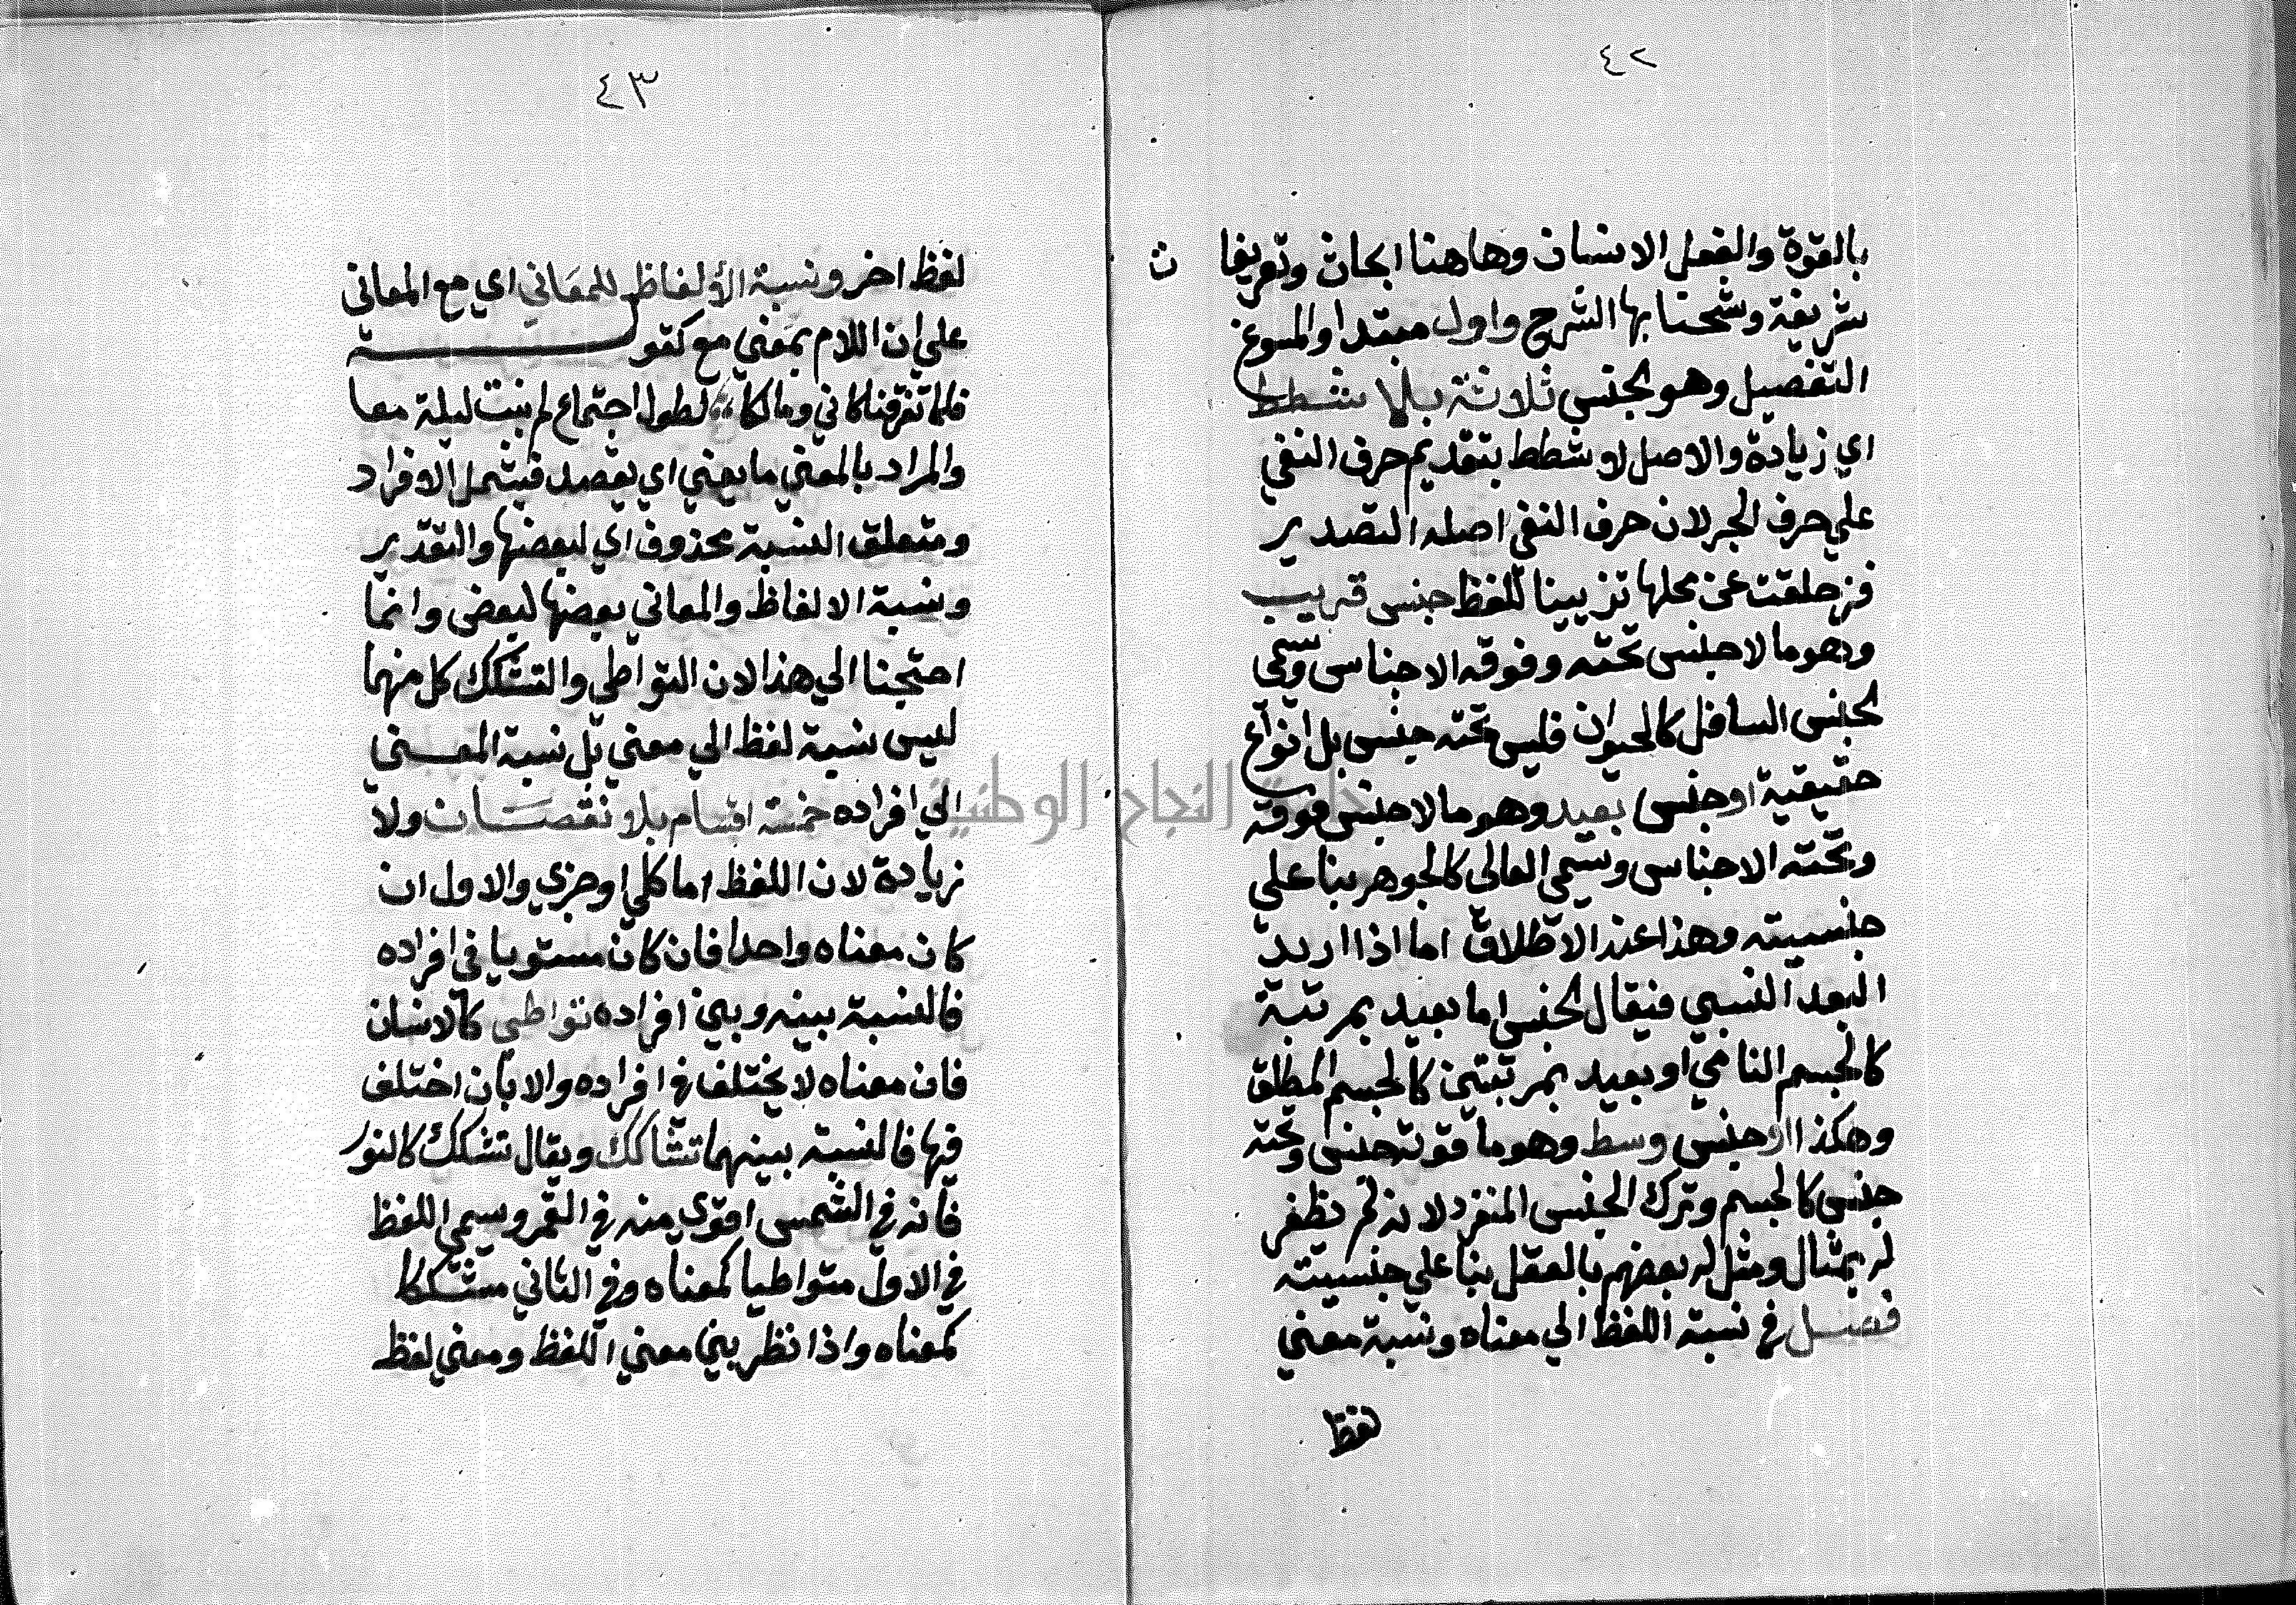 ٤٢
بالقوة والفعل الانسان وهاهنا ابحاث وتعريفا ث
شريفة وشحنا بها الشرح واول مبتدا والمسوغ
التفصيل وهو لجنس ثلاثة بلا شطط
اي زيادة والاصل لا شطط بتقديم حرف النفي
علي حرف الجر لان حرف النفي اصله التصدير
فزحلقت عن محلها تزيينا للفظ جنس قريب
وهو ما لا جنس تحته وفوقه الاجناس وسمي
لجنس السافل كالحيوان فليس تحته جنس بل انواع
حقيقية او جنس بعيد وهو ما لا جنس فوقه
وتحته الاجناس وسمي العالي كالجوهر بنا علي
جنسيته وهذا عند الاطلاق اما اذا اريد
البعد النسبي فيقال لجنس اما بعيد بمرتبة
كالجسم النامي او بعيد بمرتبتين كالجسم المطلق
وهكذا او جنس وسط وهو ما فوقه جنس وتحته
جنس كالجسم وترك الجنس المنفرد لانه لم نظفر
له بمثال ومثل له بعضهم بالعقل بنا علي جنسيته
فصل في نسبة اللفظ الي معناه ونسبة معني
لفظ
٤٣
لفظ اخر ونسبة الألفاظ للمعاني اي مع المعاني
علي ان اللام بمعني مع كقوله
فلما تفرقنا كاني ومالكا لطول اجتماع لم نبت ليلة معا
والمراد بالمعني ما يعني اي يقصد فيشمل الافراد
ومتعلق النسبة محذوف اي لبعضها والتقدير
ونسبة الالفاظ والمعاني بعضها لبعض وانما
احتجنا الي هذا لان التواطي والتشكك كل منهما
ليس نسبة لفظ الي معني بل نسبة المعني
الي افراده خمسة اقسام بلا نقصان ولا
زيادة لان اللفظ اما كلي او جزي والاول ان
كان معناه واحدا فان كان مستويا في افراده
فالنسبة بينه وبين افراده تواطي كالانسان
فان معناه لا يختلف في افراده والا بان اختلف
فيها فالنسبة بينهما تشاكك ويقال تشكك كالنور
فانه في الشمس اقوي منه في القمر وسمي اللفظ
في الاول متواطيا كمعناه وفي الثاني مشككا
كمعناه واذا نظر بين معني اللفظ ومعني لفظ
جامعة النجاح الوطنية